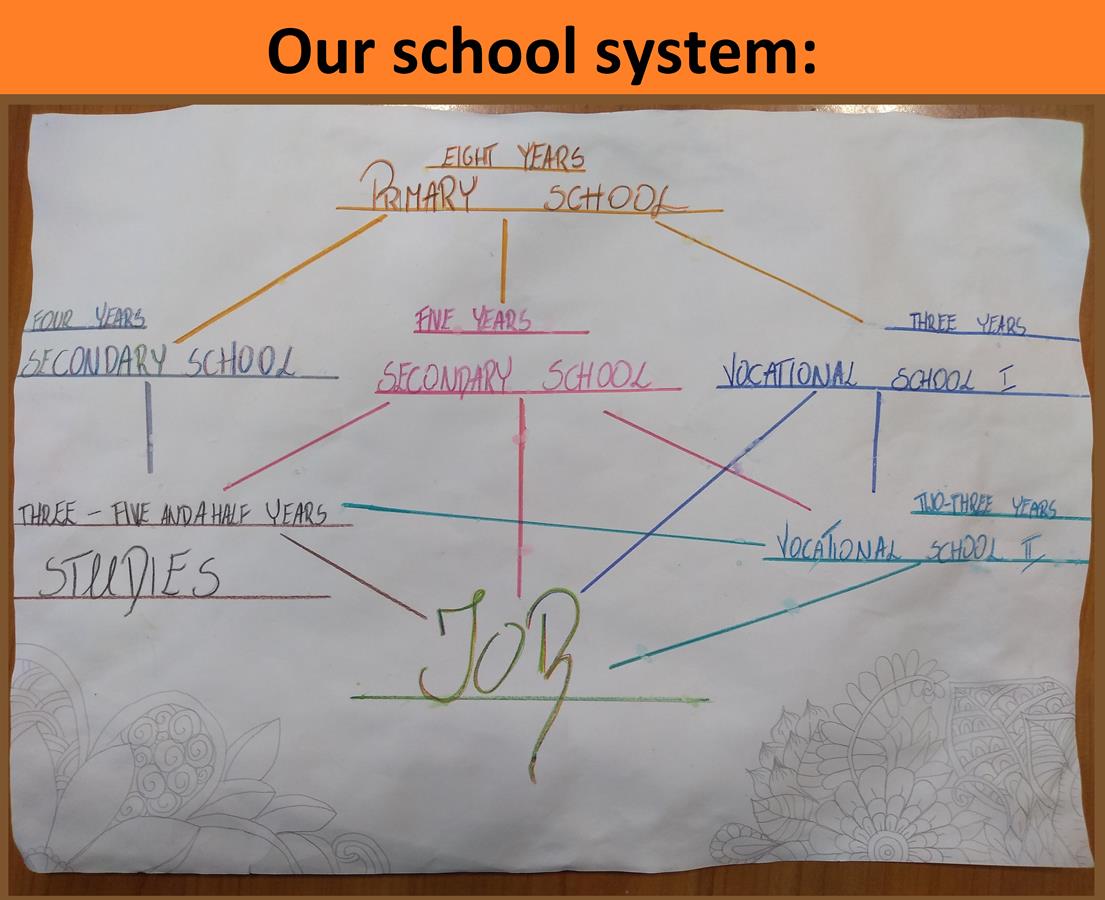 Our school system:
EIGHT YEARS
PRIMARY SCHOOL
FOUR YEARS
SECONDARY SCHOOL
FIVE YEARS
SECONDARY SCHOOL
THREE YEARS
VOCATIONAL SCHOOL I
THREE - FIVE AND A HALF YEARS
STUDIES
TWO-THREE YEARS
VOCATIONAL SCHOOL II
JOB